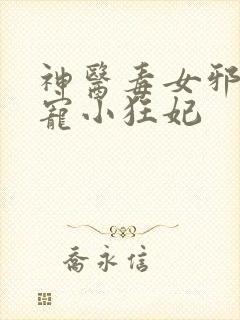 神醫毒女邪
寵小狂妃
喬永信